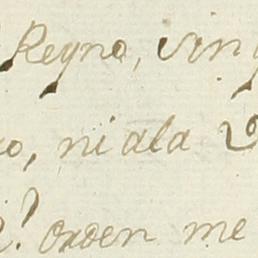 Reyno, sin
ni ala
orden me